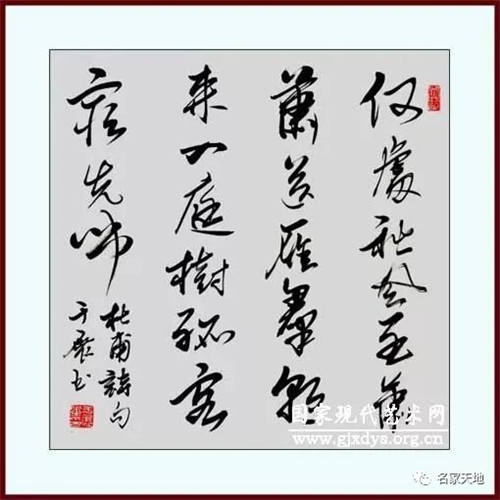 何處秋風至蕭
蕭送雁羣朝
來入庭樹孤客
最先聞
杜甫詩句
国家现代艺术网
www.gjxdys.org.cn
名家天地